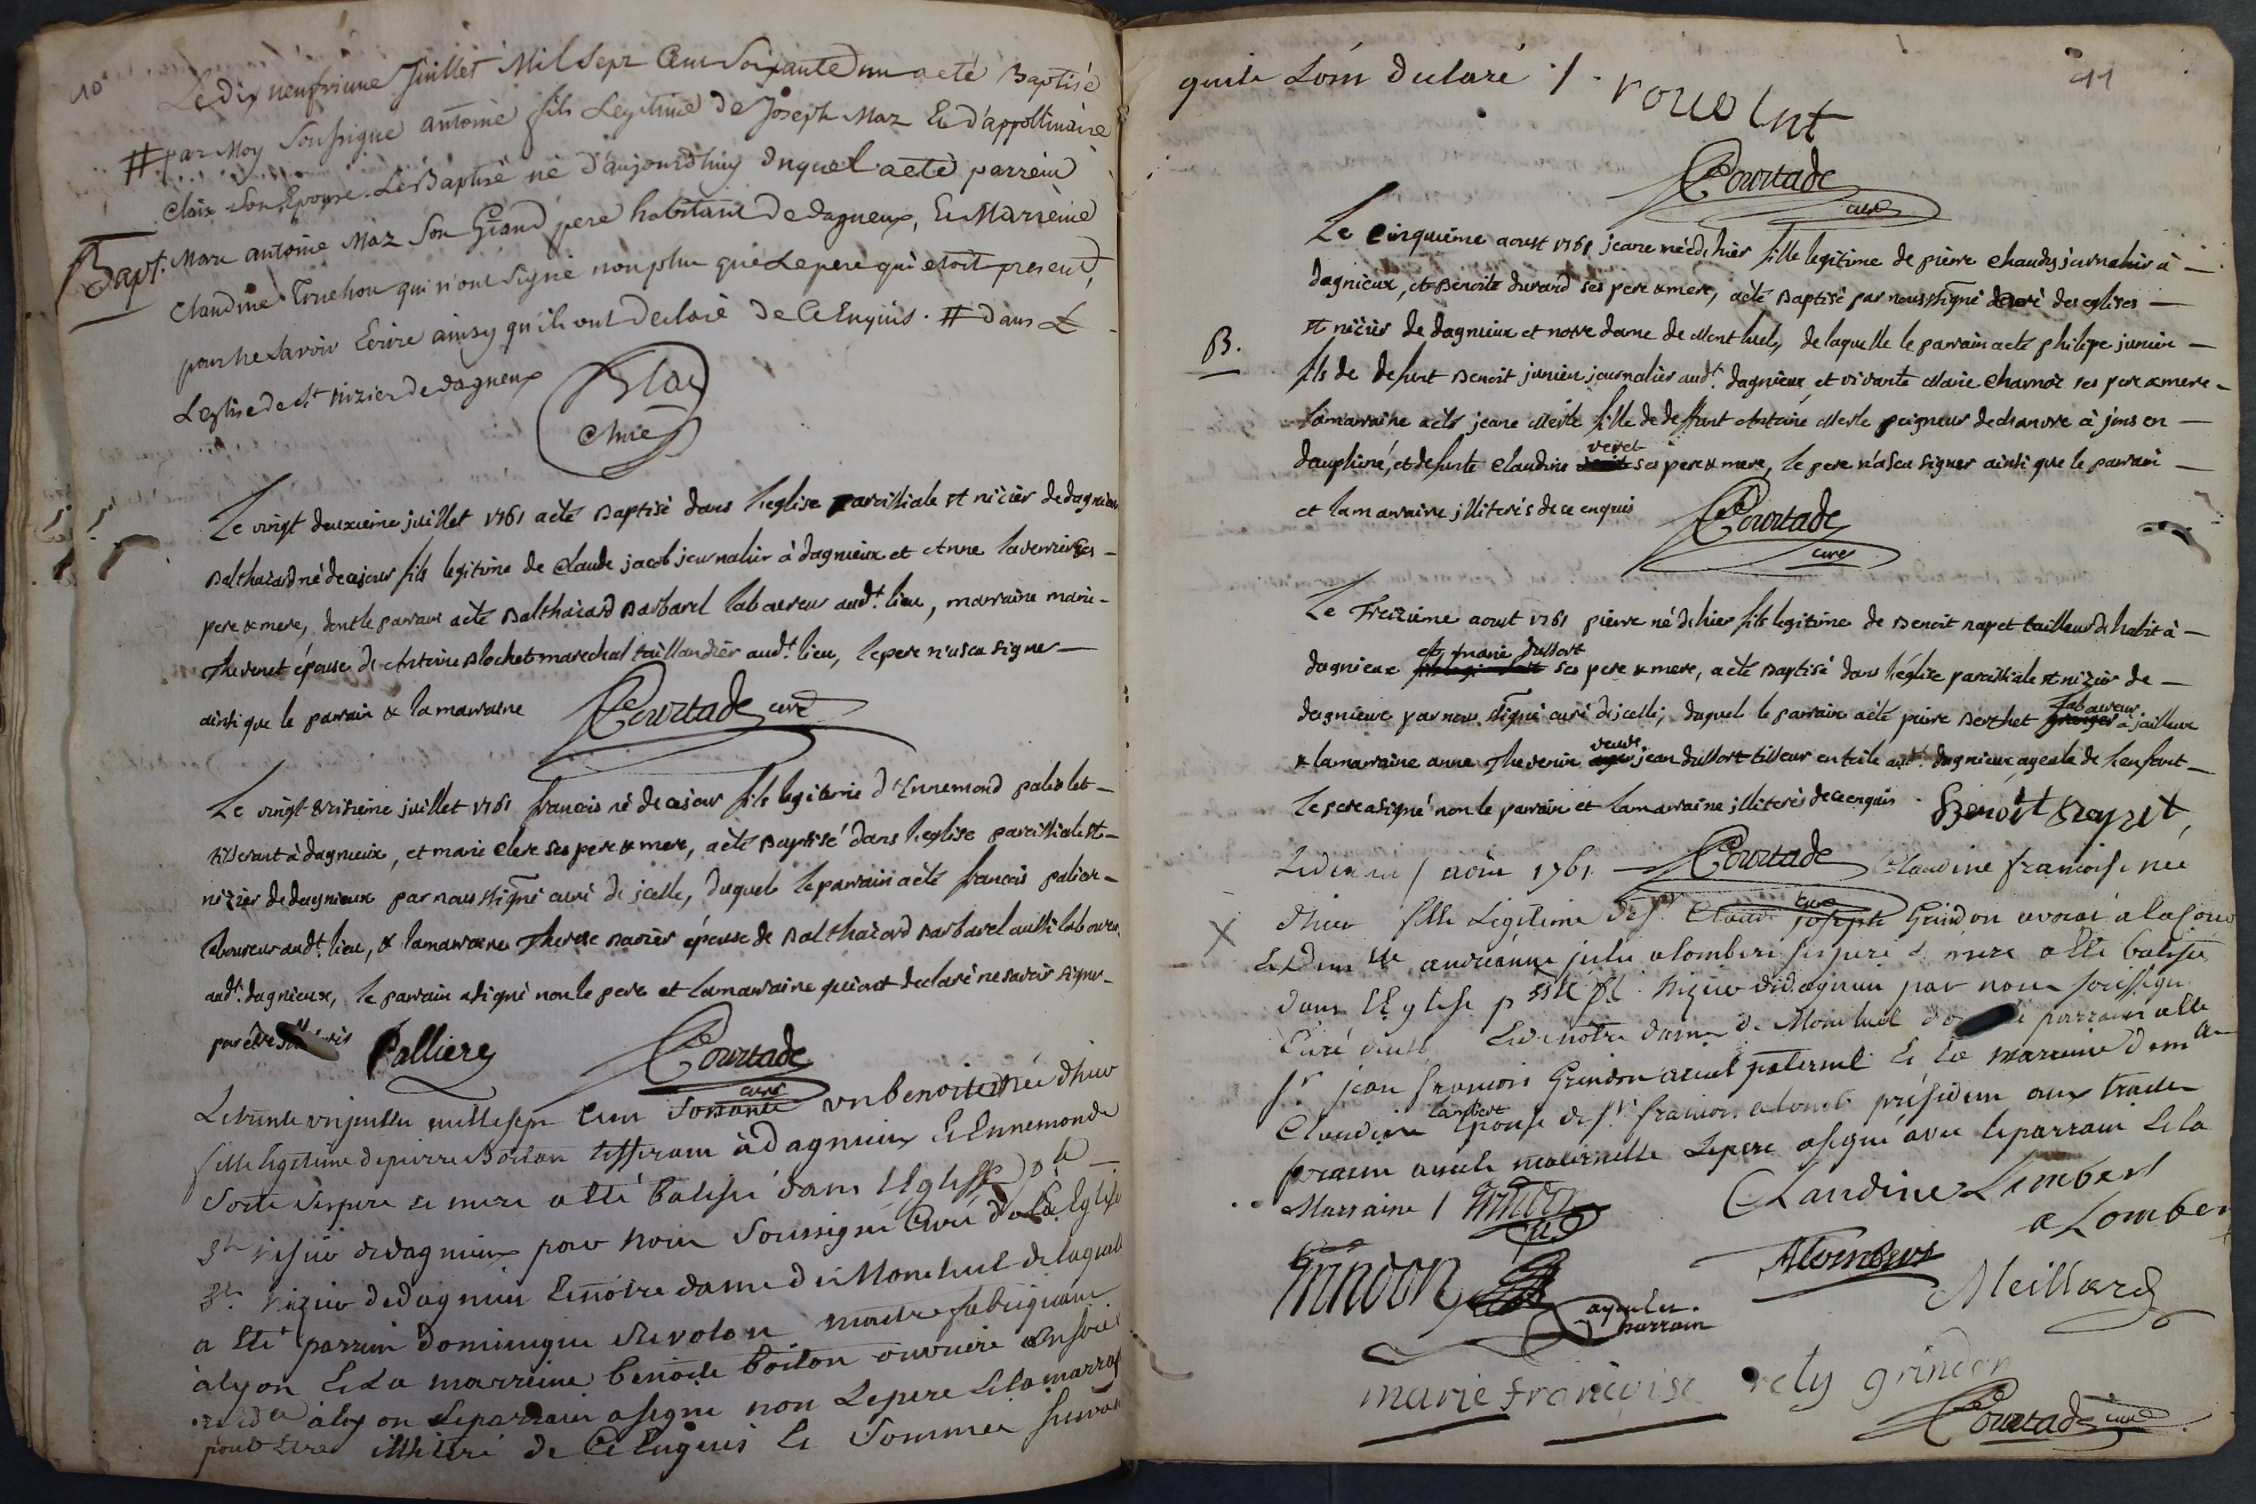 10
Le dix neufvieme Juillet Mil Sept Cent Soixante un a eté Baptisé
# par Moy Soussigné antoine fils Legitime de Joseph Maz Et d'appollinaire
Claix Son Epouse Le Baptisé né D'aujourdhuy Duquel a eté parrein
Bapt. Marc antoine Maz Son Grand pere habitant De dagneux, Et Marreine
Claudine Truchon qui n'ont Signé non plus que Le pere qui etoit present,
pour ne Savoir Ecrire ainsy qu'ils ont Declaré De Ce Enquis. # dans L
L'eglise de St nizier De dagneux
Curé
Le vingt deuxieme juillet 1761 a èté Baptisé dans l'eglise paroissiale st nicièr de dagnieux
Balthazard né de ce jour fils legitime de Claude jacob journalier à dagnieux et Anne laverrière ses
pere & mere, dont le parrain a èté Balthazard Barbarel laboureur audt. lieu, marraine marie
Thevenet épouse de Antoine Blochet marechal taillandier audt. lieu, le pere n'a scu signer
ainsi que le parrain & la marraine Courtade curé
Le vingt troisieme juillet 1761 francois né de ce jour fils legitime d'Ennemond
tisserant à dagnieux, et marie clere ses pere & mere, a èté Baptisé dans l'eglise paroissiale st
nizièr de dagnieux par nous ssigné curé d'jcelle, duquel le parrain a èté francois palier
laboureur audt. lieu, & la marraine Therese épouse de Balthazard Barbarel aussi laboureur
audt. dagnieux, le parrain a signé non le pere et la marraine qui ont declaré ne savoir signer
par être
Palliere Courtade curé
Le trente un juillet mille sept Cent Soixante un benoite née d'hier
fille legitime de pierre Boiton tisseran à Dagnieux Et Ennemonde
Ses pere et mere a été batisée dans l'Eglise plle
St nisier de dagnieux par nous Soussigné Curé de L'Eglise
St. nizier de dagnieux Et notre dame de Montluel de laquelle
a été parrein Dominique Revolon maitre fabriquant
à lyon Et La marreine benoite boiton ouvriere en soie
à lyon Le parrain a signé non Le pere Et la marraine
pour etre illiteré de Ce Enquis Et Sommée suivant
11
qu'ils L'ont declaré ./.
Courtade
curé
Le cinquième aoust 1761 jeane née d'hier fille legitime de pierre Chaudy journalier à
dagnieux, et Benoite durand ses pere & mere, a èté Baptisé par nous ssigné curé des eglises
B. st niciér de dagnieux et notre dame de Montluel, de laquelle le parrain a èté philipe junien
fils de defunt Benoit junien journalier audt. dagnieux, et vivante Marie Charnoz ses pere & mere
la marraine a èté jeane Merle fille de deffunt Antoine Merle peigneur de chanvre à jons en
dauphiné, et defunte Claudine veret ses pere & mere, le pere n'a scu signer ainsi que le parrain
et la marraine jlliterés de ce enquis Courtade
curé
Le Treizieme aoust 1761 pierre né d'hier fils legitime de Benoit nayet tailleur d'habit à
dagnieux et marie dussort ses pere & mere, a èté Baptisé dans l'église paroissiale st nizièr de
dagnieux par nous ssigné curé d'jcelle, duquel le parrain a èté pierre Berthet laboureur à jailleux
& la marraine anne Thevenin veuve jean dussort tisseur en toile audt. dagnieux, ayeule de l'enfant
le pere a signé non le parrain et la marraine jlliterés de ce enquis
Courtade
curé
Le dix / aout 1761 Claudine francoise née
X d'hier fille Legitime de Sr. Claude joseph Grindon avocat a la Cour
Et Dem lle julie alombert ses pere & mere a été batisée
dans L'Eglise plle St. nizier de dagnieux par nous soussigné
Curé Et de notre dame de Montluel parrain a été
Sr jean francois Grindon aieul paternel Et La marreine Demlle
Claudine Lambert Epouse de Sr. francois alombert président aux traites
aieule maternelle Le pere a signé avec le parrain Et la
Marraine / Grindon Claudine Lambert
a Lombert
Grindon Alombert
ayeul et
parrain
Meillard
marie françoise rely grindon
Courtade curé